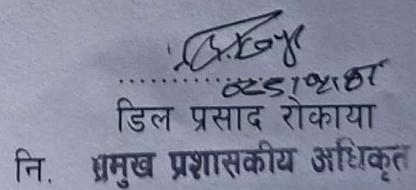 डिल प्रसाद रोकाया
नि. प्रमुख प्रशासकीय अधिकृत